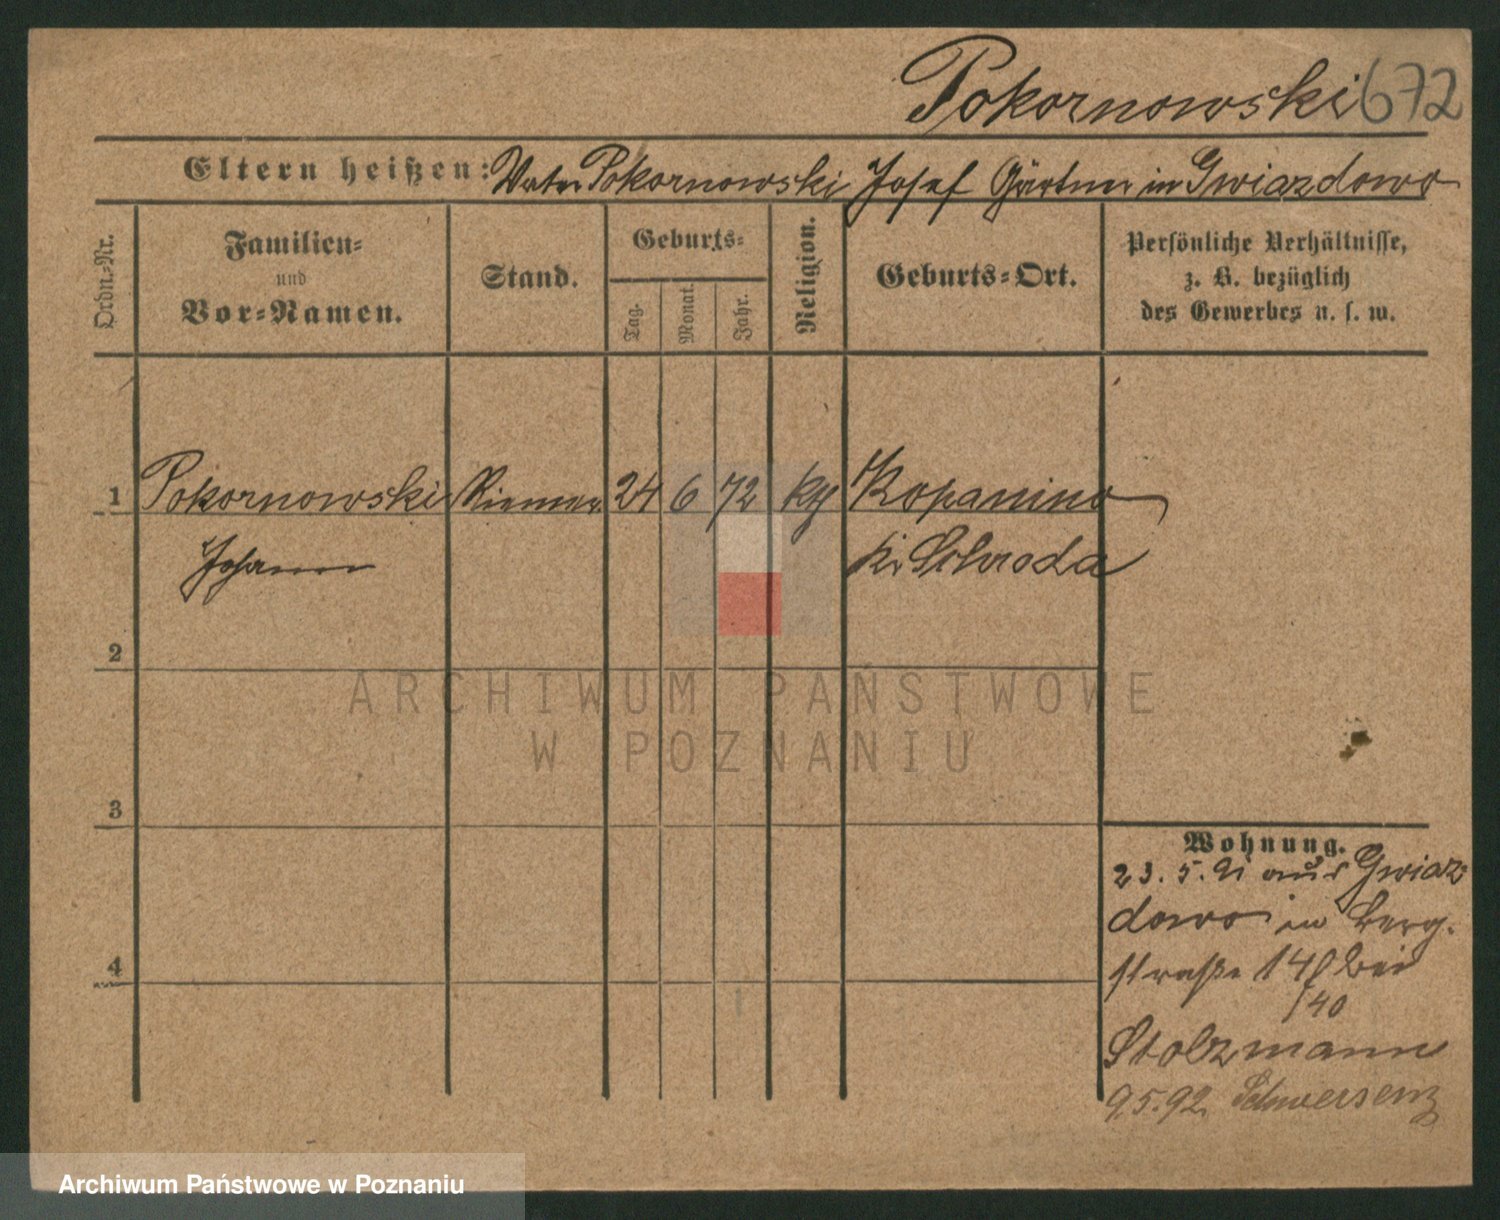 Pokornowski 672
Eltern heißen: Vater Pokornowski Josef Gärtner in Gwiazdowo
Ordn.-Nr.
Familien-
und
Vor-Namen.
Stand.
Geburts-
Tag.
Monat.
Jahr.
Religion.
Geburts-Ort.
Persönliche Verhältnisse,
z. B. bezüglich
des Gewerbes u. s. w.
1 Pokornowski Riemer 24 6 72 kath Kopanino
Johann Kr. Schroda
2
ARCHIWUM PAŃSTWOWE
W POZNANIU
3
4
Wohnung.
23.5.91 aus Gwiaz
dowo in Berg-
straße 14 bei
/40
Stolzmann
9.5.92. Schwersenz
Archiwum Państwowe w Poznaniu